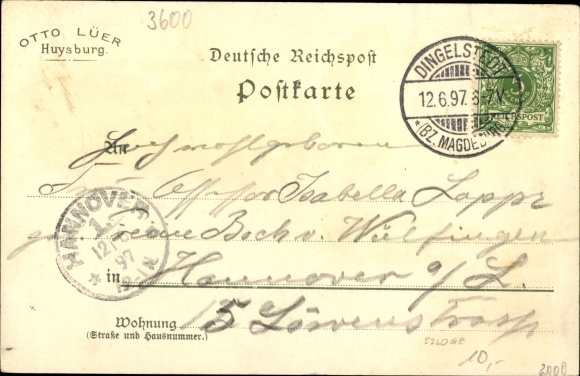 3600
OTTO LÜER
Huysburg.
Deutsche Reichspost
Postkarte
DINGELSTEDT
12.6.97. 6-7V.
* (BZ. MAGDEBURG)
REICHSPOST
An Hochwohlgeboren
Frau Isabella
Bock v. Wülfingen
HANNOVER
1
12 6 97
in Hannover a/L.
Wohnung 15 Löwenstrasse
(Straße und Hausnummer.)
10,-
2000